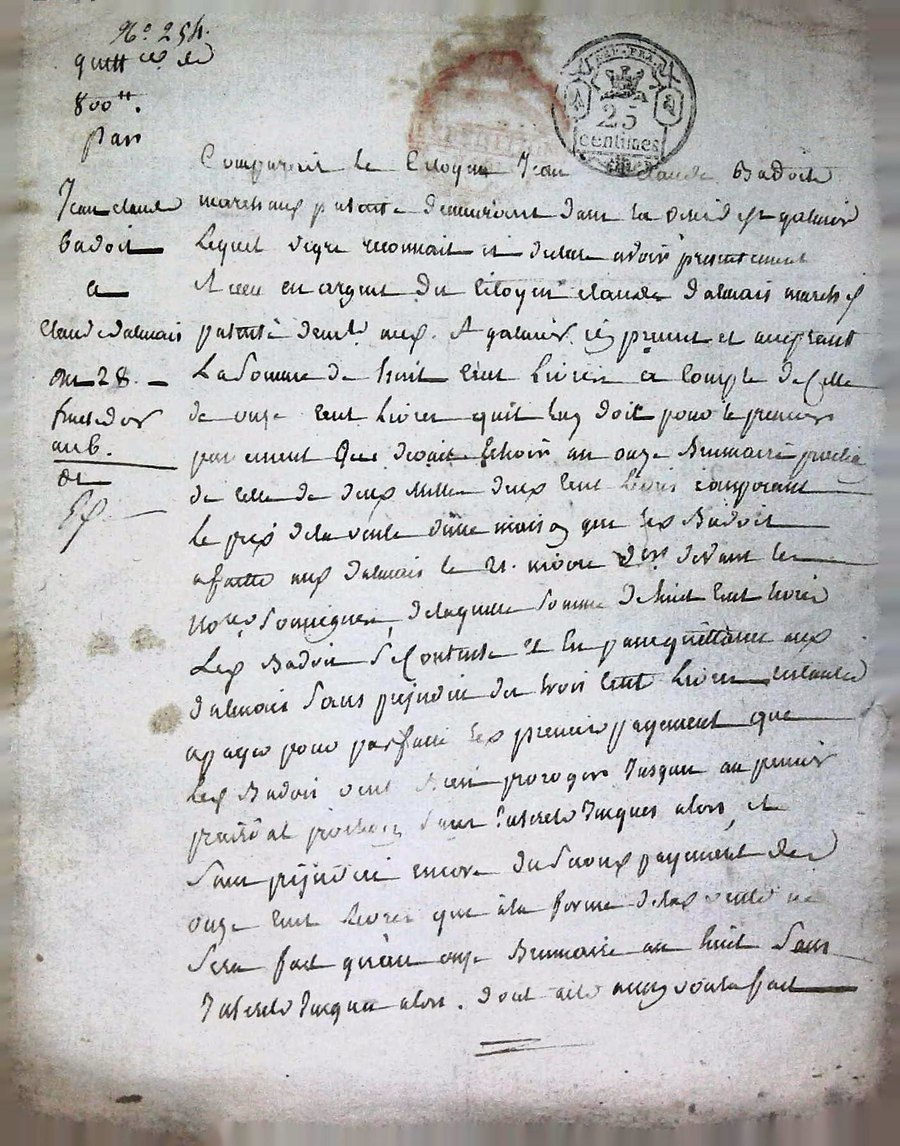 N.° 254.
quitt.ce de
800tt.
par
Jean claude
badoit
a
Claude dalmais
du 28.
fructidor
an 6.
REP. FRA.
25
centimes
Comparait le Citoyen Jean Claude Badoit
marchand patenté demeurant dans la de st galmier
Lequel de gré reconnait et declare avoir presentement
Reçu en argent du Citoyen claude dalmais march.d
patenté aud. St galmier icy present et acceptant
La Somme de huit Cent Livres a Compte de Celle
de onze Cent Livres quil luy doit pour le premier
payement que devait Echoir au onze Brumaire
de Celle de deux Mille deux Cent Livres composant
le prix de la vente d'une maison que led. Badoit
a faitte aud. dalmais le 21. nivose devant les
no.res Soussignes, de laquelle Somme de huit Cent livres
Led. Badoit Se Contente et En passe quittance aud.
dalmais Sans prejudice des trois Cent Livres restantes
a payer pour parfaire led. premier payement que
led. Badoit veut Bien proroger Jusquau premier
prairial prochain Sans Interets Jusques alors, et
Sans prejudice encore du Second payement de
onze Cent Livres qui a la forme de lad. vente ne
Sera fait qu'au onze Brumaire an huit Sans
Interets Jusqua alors. dont acte